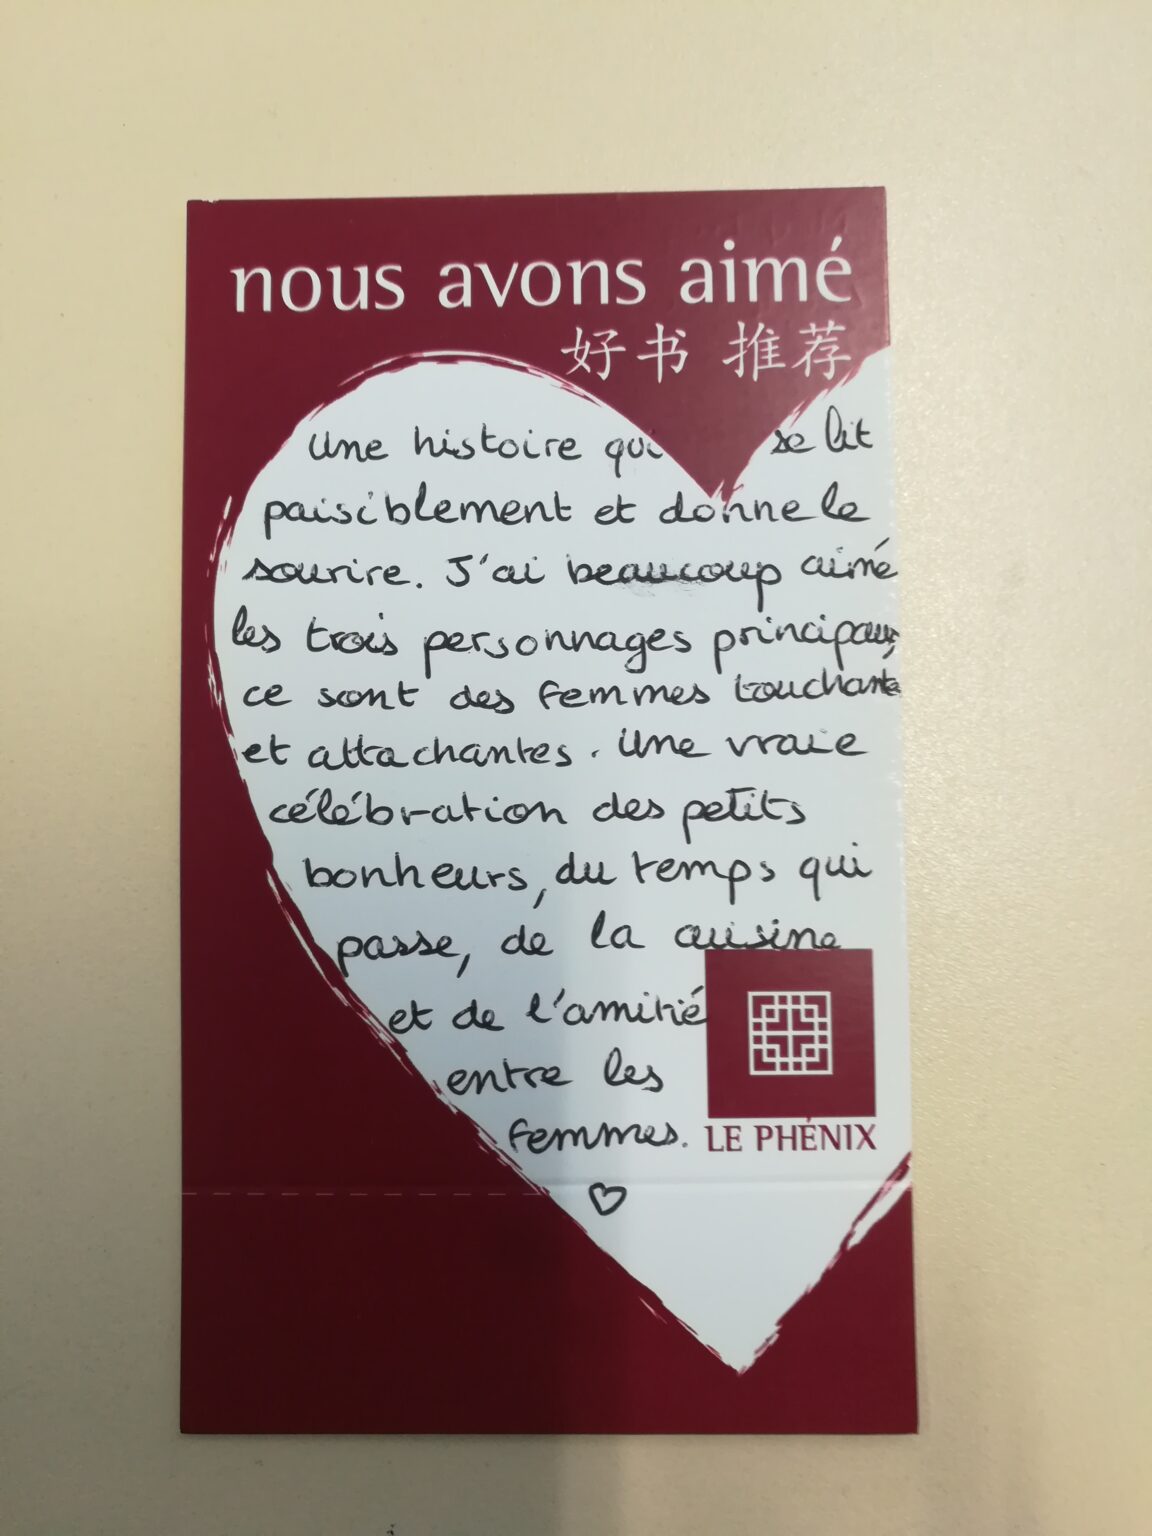 nous avons aimé
好书 推荐
Une histoire qui se lit
paisiblement et donne le
sourire. J'ai beaucoup aimé
les trois personnages principaux,
ce sont des femmes touchantes
et attachantes. Une vraie
célébration des petits
bonheurs, du temps qui
passe, de la cuisine
et de l'amitié
entre les
femmes.
LE PHÉNIX